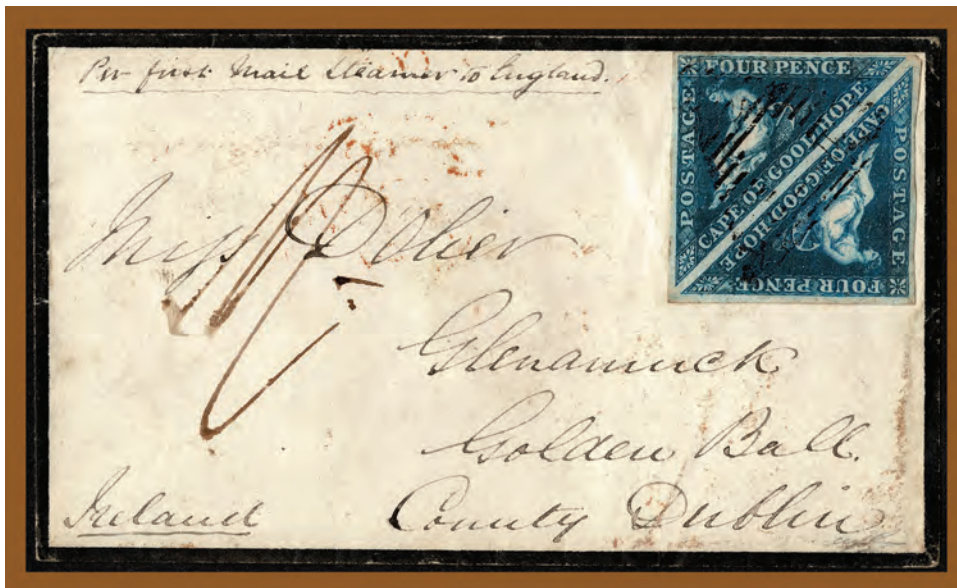 Per first Mail Steamer to England.
FOUR PENCE
POSTAGE
CAPE OF GOOD HOPE
CAPE OF GOOD HOPE
POSTAGE
FOUR PENCE
Miss D'Olier
Glenamuck
Golden Ball.
County Dublin
Ireland